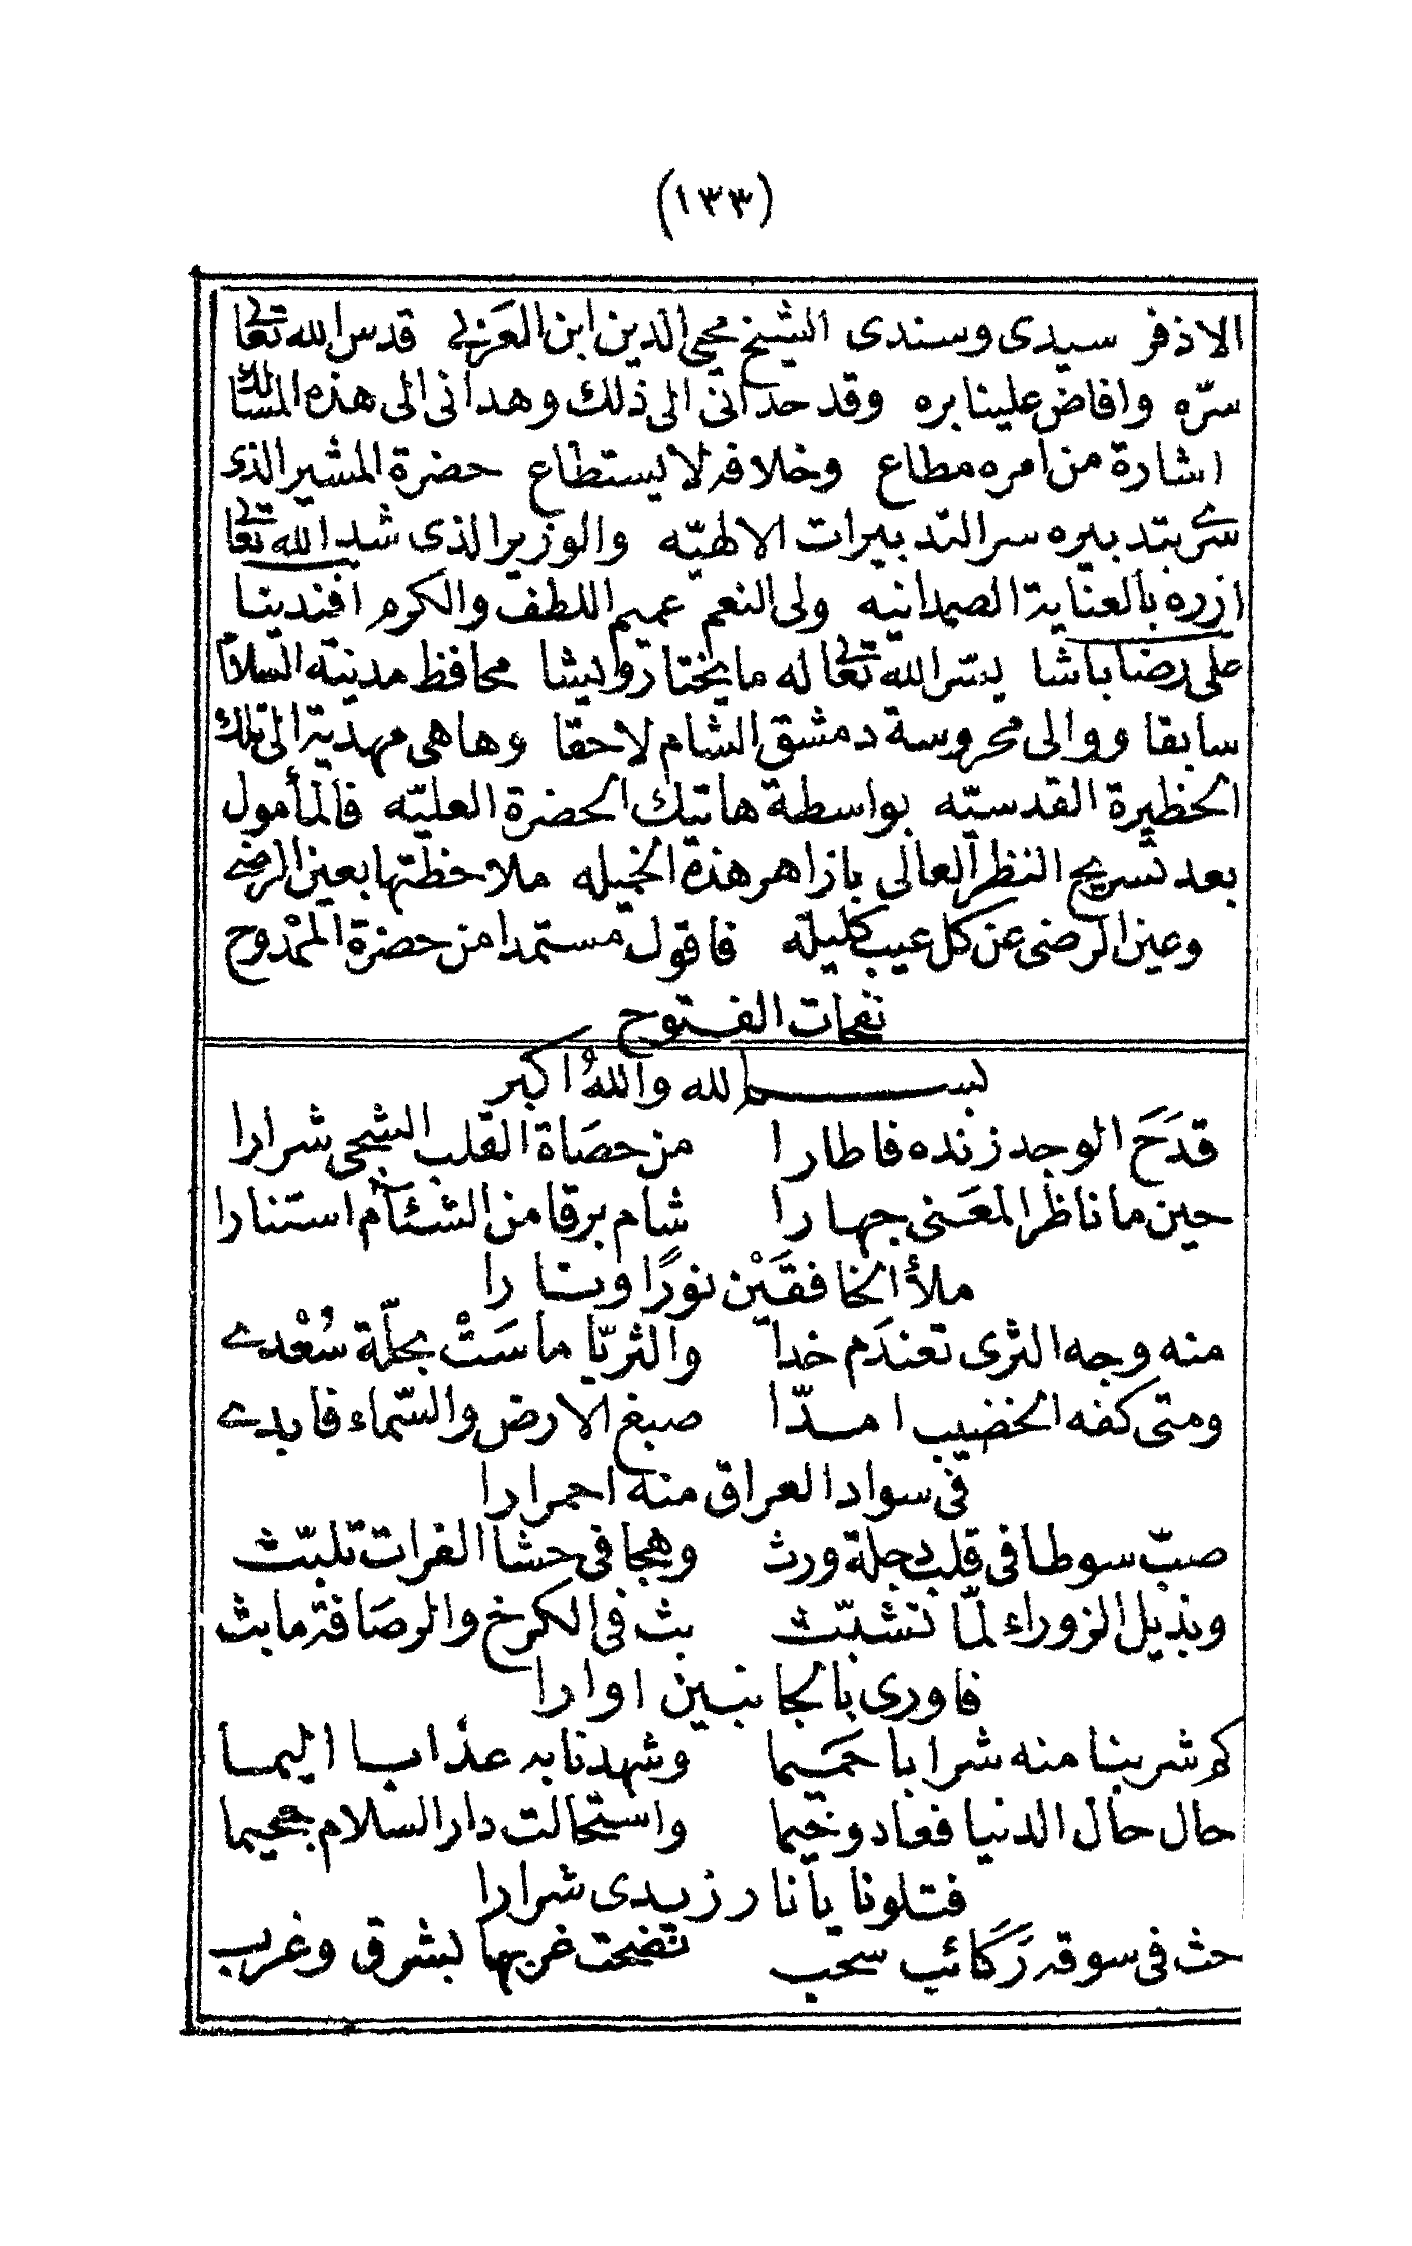 (١٣٣)
الاذفر سيدى وسندى الشيخ محيى الدين ابن العربى قدس الله تعالى
سرّه وافاض علينا بره وقد حدانى الى ذلك وهدانى الى هذه المسالك
اشارة من امره مطاع وخلافه لا يستطاع حضرة المشير الذى
سرى بتدبيره سر التدبيرات الالهيّه والوزير الذى شد الله تعالى
ازره بالعناية الصمدانيه ولى النعم عميم اللطف والكرم افندينا
على رضا باشا يسّر الله تعالى له ما يختار وليشا محافظ مدينة السلام
سابقا ووالى محروسة دمشق الشام لاحقا وها هى مهدية الى تلك
الحظيرة القدسيّه بواسطة هاتيك الحضرة العليّه فالمأمول
بعد تسريح النظر العالى بازاهر هذه الخميله ملاحظتها بعين الرضى
وعين الرضى عن كل عيب كليلة فاقول مستمدا من حضرة الممدوح
نفحات الفتوح
بسم الله والله اكبر
قدَحَ الوجد زنده فاطارا من حصَاة القلب الشجى شرارا
حين ما ناظر المعَنى جهارا شام برقا من الشئام استنارا
ملأ الخافقَيْن نورًا ونارا
منه وجه الثرى تعندَم خدا والثريّا ماسَتْ بحلّة سُعْدى
ومتى كفه الخضيب امدّا صبغ الارض والسّماء فابدى
فى سواد العراق منه احمرارا
صبّ سوطا فى قلب دجلة ورث وهجا فى حشا الفرات تلبّث
وبذيل الزوراء لمّا تشبّث بث فى الكرخ والرصَافة ما بث
فاورى بالجانبين اوارا
كم شربنا منه شرابا حمَيما وشهدنا به عذابا اليما
حال حال الدنيا فعاد وخيما واستحالت دار السلام جحيما
فتلونا يا نار زيدى شرارا
حث فى سوقه رَكائب سحب نضحت غربها لبشرق وغرب